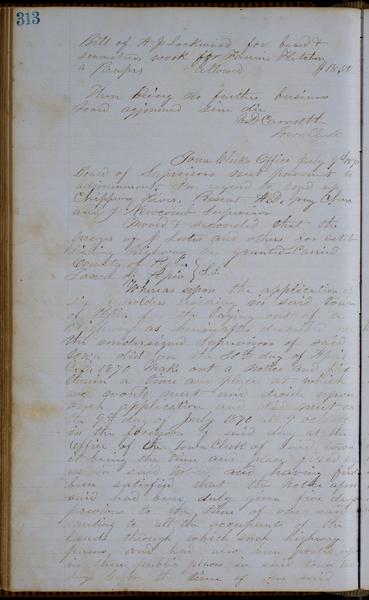 313
Bill of A J Lockwood for board &
work for
a Pauper allowed
There being no further business
board adjourned Sine die
Town Clerk
Town Clerks Office July 9th 1870
Board of Supervisors met pursuant to
adjournment. In regard to road up
Chippewa River. Present
and J Newcomb Supervisors
Moved & seconded that the
prayer of J and others for estab
lishing highway be granted—Carried
County of Pepin }
Town of Pepin } S.S.
Whereas upon the application of
six freeholders residing in said town
of Pepin for the laying out of a
Highway as hereinafter described
the undersigned Supervisors of said
town did on the 30th day of April
1870 make out a notice and fix
therein a time and place at which
we would meet and decide upon
such application and did meet on
the 9th day of July 1870 at 9 oclock
in the forenoon of said day at the
Office of the Town Clerk of said town
it being the time and place fixed by
us in said notice, and having first
been satisfied that the notice afore
said had been duly given five days
previous to the time of our said
meeting to all the occupants of the
lands through which such highway
passes and had also been posted up
in three public places in said town ten
days before the time of our said